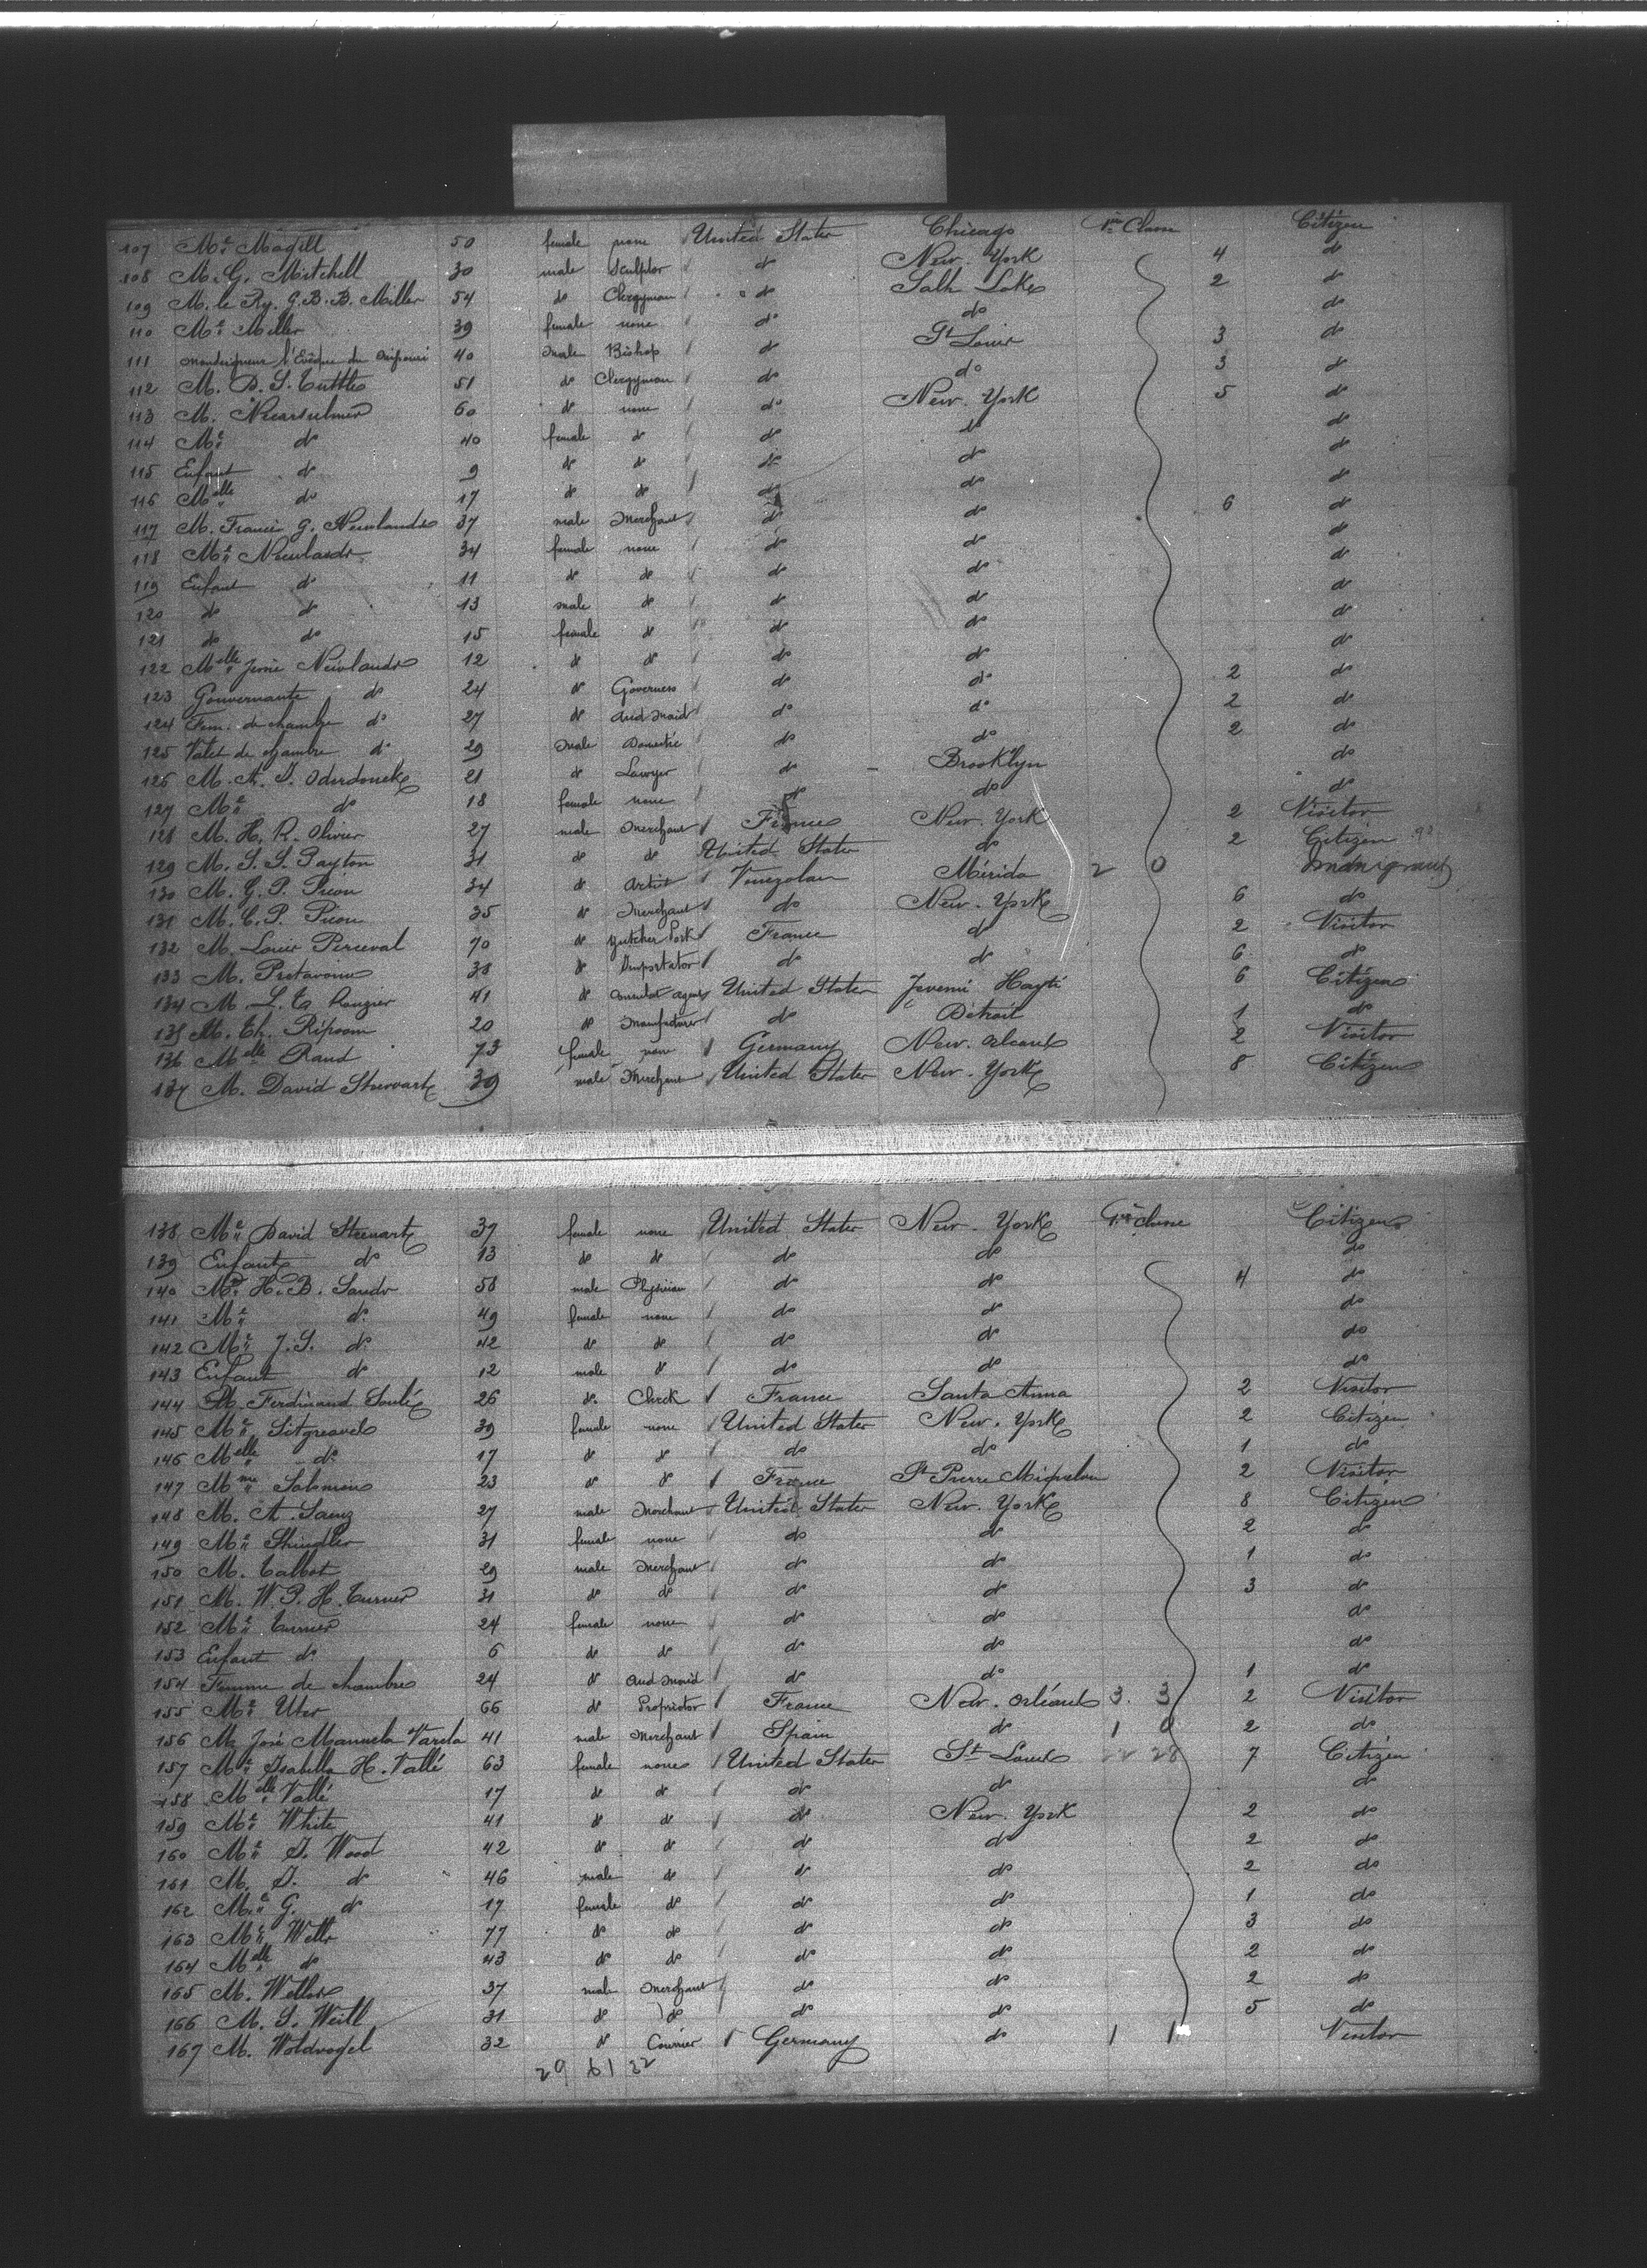 107 Me. Magill 50 female none United States Chicago 1re Classe Citizen
108 M. G. Mitchell 30 male Sculptor do New-York 4 do
109 M. le Rg. G. B. B. Miller 54 do Clergyman do Salk Lake 2 do
110 Me. Miller 39 female none do do do
111 Monseigneur l'Evêque du Missouri 40 male Bishop do St Louis 3 do
112 M. D. S. Tuttle 51 do Clergyman do do 3 do
113 M. 60 do none do New-York 5 do
114 Me. do 40 female do do do do
115 Enfant do 9 do do do do do
116 Melle do 17 do do do do do
117 M. Francis G. Newlands 37 male Merchant do do 6 do
118 Me. Newlands 34 female none do do do
119 Enfant do 11 do do do do do
120 do do 13 male do do do do
121 do do 15 female do do do do
122 Melle Jessie Newlands 12 do do do do do
123 Gouvernante do 24 do Governess do do 2 do
124 Fem. de chambre do 27 do and maid do do 2 do
125 Valet de chambre do 29 male Domestic do do 2 do
126 M. A. J. Oderdonck 21 do Lawyer do Brooklyn do
127 Me. do 18 female none do do do
128 M. H. R. Olivier 27 male Merchant France New-York 2 Visitor
129 M. S. S. Payton 31 do do United States do 2 Citizen
130 M. G. P. Picon 34 do Artist Venezolan Mérida 2 0
131 M. C. P. Picon 35 do Merchant do New-York 6 do
132 M. Louis Perceval 70 do Butcher Pork France do 2 Visitor
133 M. Pretavoine 38 do Importator do do 6 do
134 M. L. T. Rouzier 41 do Consular agent United States Jeremie Hayti 6 Citizen
135 M. Ch. Ripsom 20 do Manufacturer do Détroit 1 do
136 Melle Rand 73 female none Germany New-Orleans 2 Visitor
137 M. David Stewart 39 male Merchant United States New-York 8 Citizen
138 Me. David Stewart 37 female none United States New-York 1re classe Citizen
139 Enfant do 13 do do do do do
140 Mr. H. B. Sands 58 male Physician do do 4 do
141 Me. do 49 female none do do do
142 Me. J. S. do 42 do do do do do
143 Enfant do 12 male do do do do
144 M. Ferdinand Soulié 26 do Clerk France Santa Anna 2 Visitor
145 Me. Sitgreaves 39 female none United States New-York 2 Citizen
146 Melle do 17 do do do do 1 do
147 Mme Salomon 23 do do France St Pierre Miquelon 2 Visitor
148 M. A. Saenz 27 male Merchant United States New-York 8 Citizen
149 Me. Shindler 31 female none do do 2 do
150 M. Talbot 29 male Merchant do do 1 do
151 M. W. P. H. Turner 31 do do do do 3 do
152 Me. Turner 24 female none do do do
153 Enfant do 6 do do do do do
154 Femme de chambre 24 do and maid do do 1 do
155 Me. Uter 66 do Proprietor France New-Orléans 3 3 2 Visitor
156 M. José Manuela Varela 41 male Merchant Spain do 1 0 2 do
157 Me. Isabella H. Vallé 63 female none United States St Louis 28 7 Citizen
158 Melle Vallé 17 do do do do do
159 Me. White 41 do do do New-York 2 do
160 Me. S. Wood 42 do do do do 2 do
161 M. S. do 46 male do do do 2 do
162 Me. G. do 17 female do do do 1 do
163 Me. Wells 77 do do do do 3 do
164 Melle do 43 do do do do 2 do
165 M. Weller 37 male Merchant do do 2 do
166 M. S. Weill 31 do do do do 5 do
167 M. Woldvogel 32 do Courrier Germany do 1 1 Visitor
29 61 32